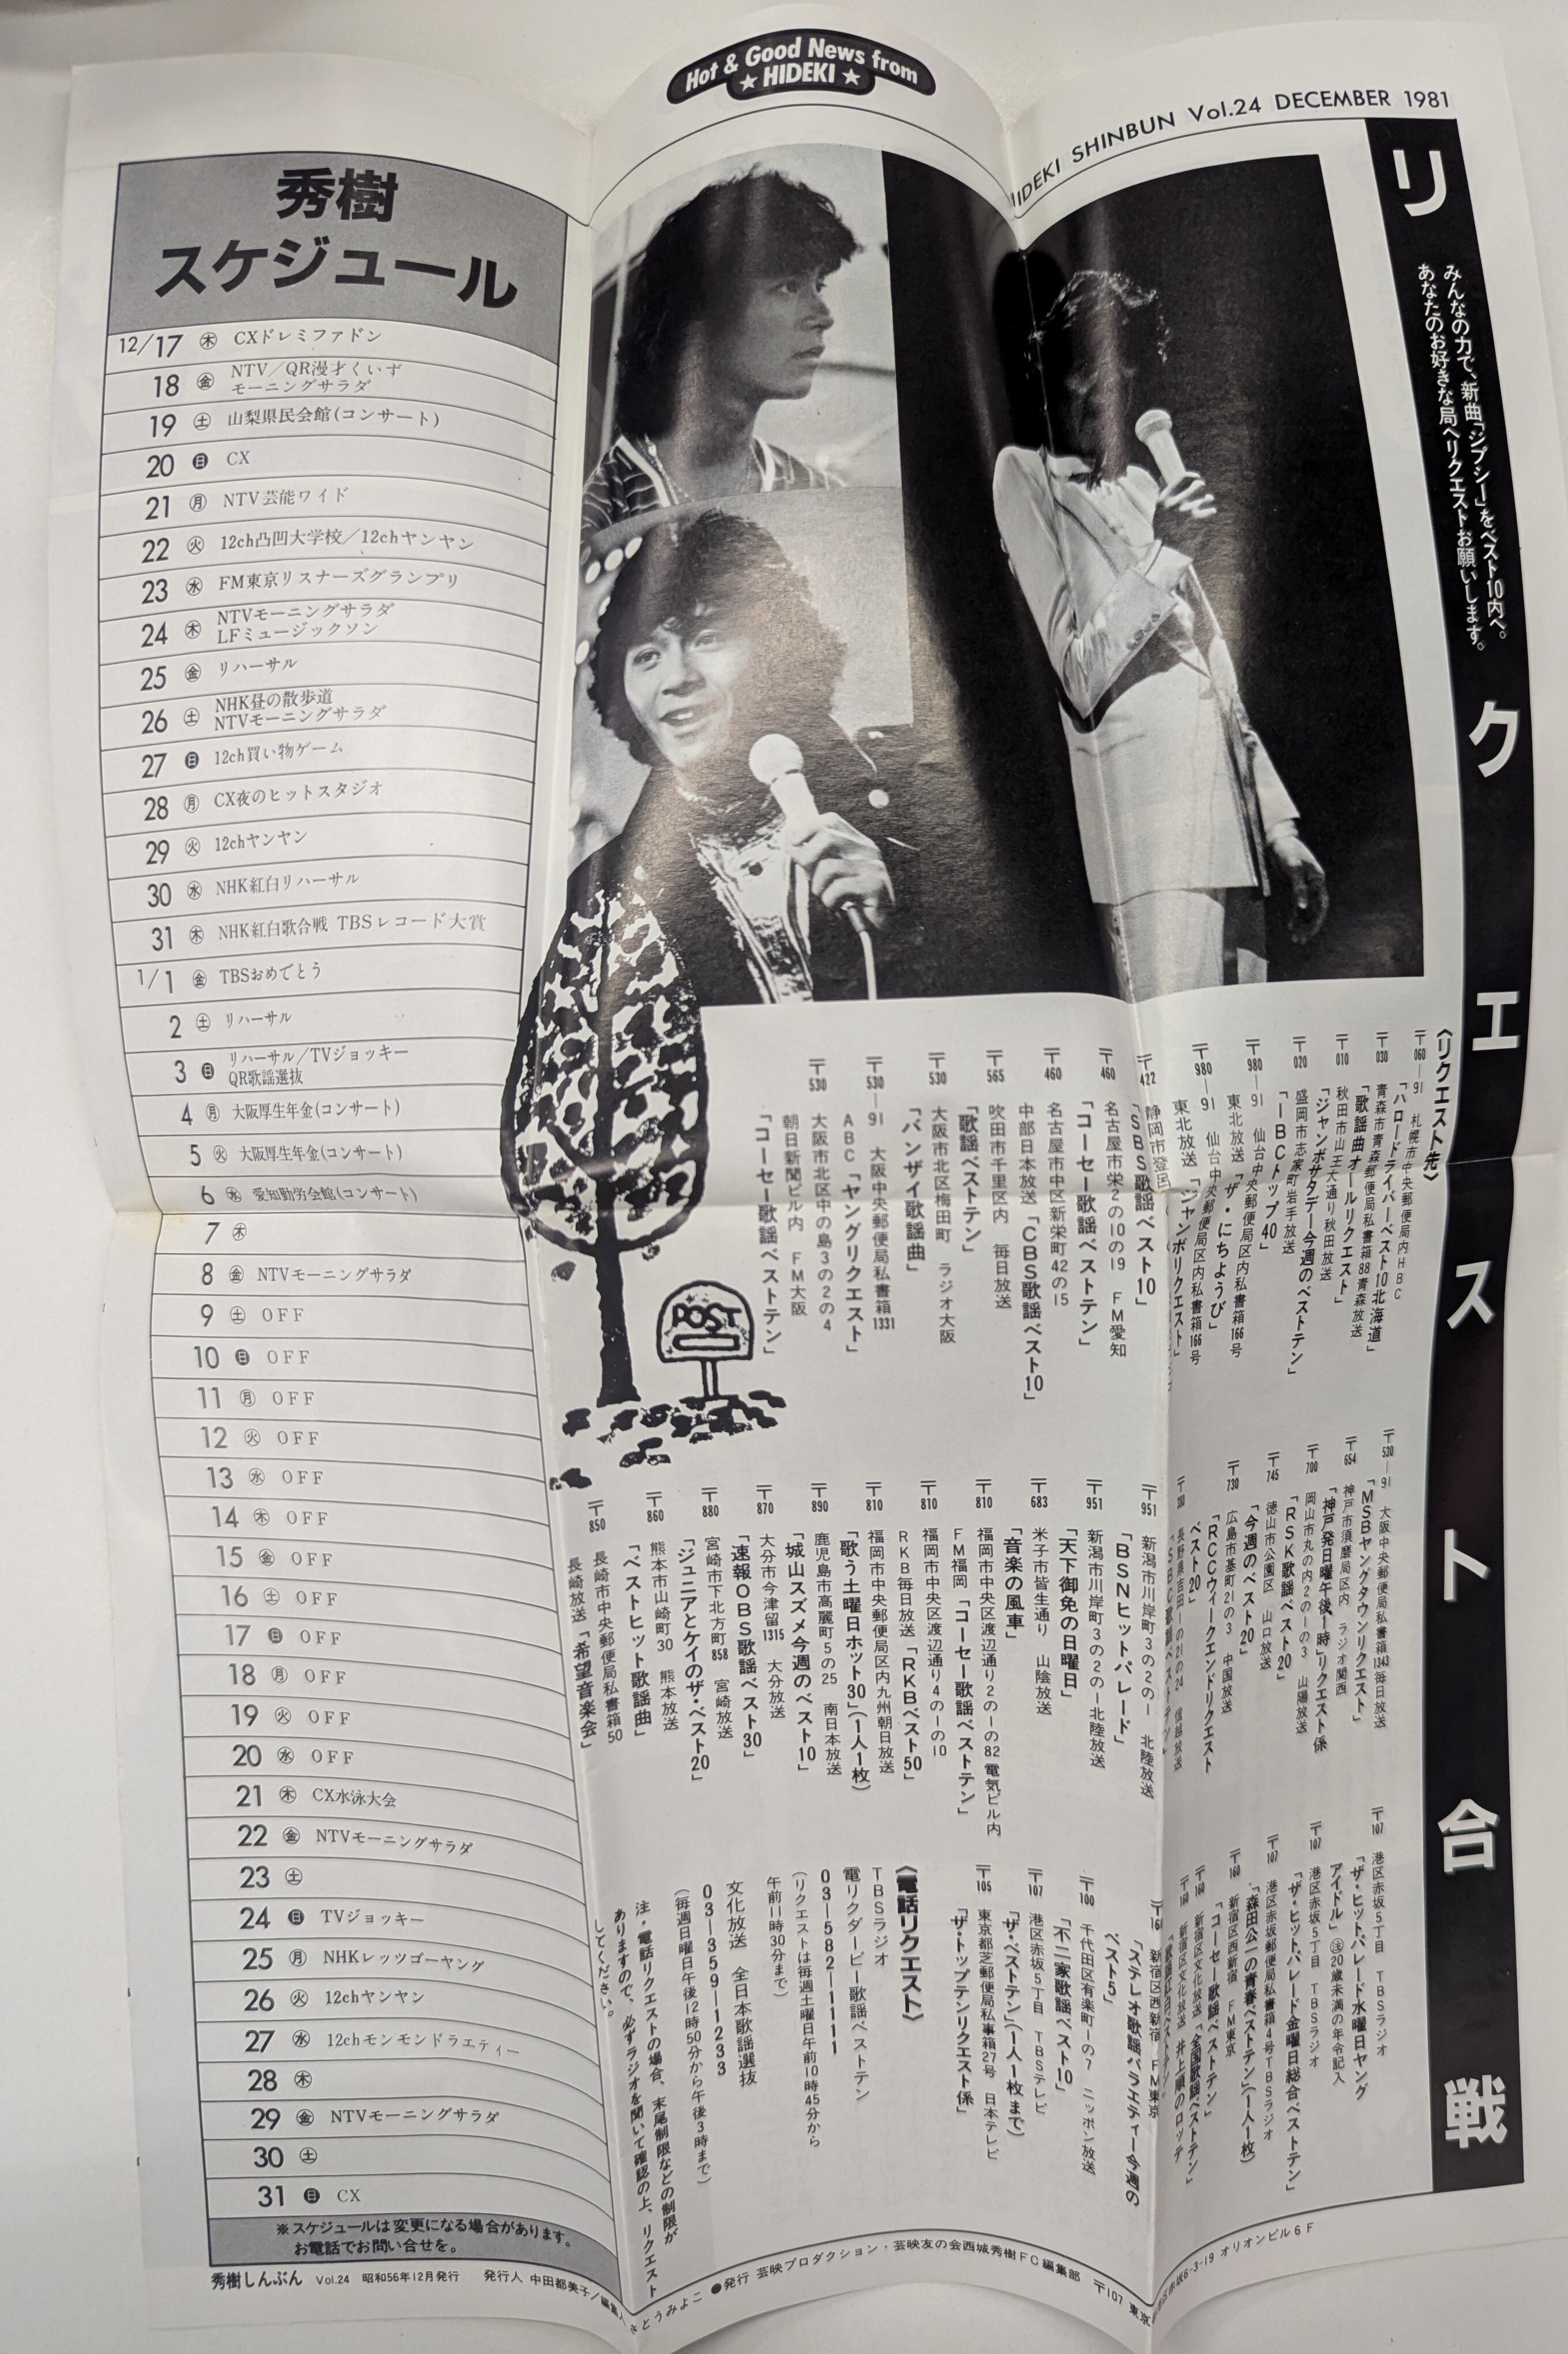 Hot & Good News from
★ HIDEKI ★
HIDEKI SHINBUN Vol.24 DECEMBER 1981
リクエスト合戦
みんなの力で、新曲「ジプシー」をベスト10内へ。
あなたのお好きな局へリクエストお願いします。
秀樹
スケジュール
12/17 木 CXドレミファドン
18 金 NTV／QR漫才くいず
モーニングサラダ
19 土 山梨県民会館(コンサート)
20 日 CX
21 月 NTV芸能ワイド
22 火 12ch凸凹大学校／12chヤンヤン
23 水 FM東京リスナーズグランプリ
24 木 NTVモーニングサラダ
LFミュージックソン
25 金 リハーサル
26 土 NHK昼の散歩道
NTVモーニングサラダ
27 日 12ch買い物ゲーム
28 月 CX夜のヒットスタジオ
29 火 12chヤンヤン
30 水 NHK紅白リハーサル
31 木 NHK紅白歌合戦 TBSレコード大賞
1/1 金 TBSおめでとう
2 土 リハーサル
3 日 リハーサル／TVジョッキー
QR歌謡選抜
4 月 大阪厚生年金(コンサート)
5 火 大阪厚生年金(コンサート)
6 水 愛知勤労会館(コンサート)
7 木
8 金 NTVモーニングサラダ
9 土 OFF
10 日 OFF
11 月 OFF
12 火 OFF
13 水 OFF
14 木 OFF
15 金 OFF
16 土 OFF
17 日 OFF
18 月 OFF
19 火 OFF
20 水 OFF
21 木 CX水泳大会
22 金 NTVモーニングサラダ
23 土
24 日 TVジョッキー
25 月 NHKレッツゴーヤング
26 火 12chヤンヤン
27 水 12chモンモンドラエティー
28 木
29 金 NTVモーニングサラダ
30 土
31 日 CX
※スケジュールは変更になる場合があります。
お電話でお問い合せを。
〈リクエスト先〉
〒060―91 札幌市中央郵便局内HBC
「ハロードライバーベスト10北海道」
〒030 青森市青森郵便局私書箱88青森放送
「歌謡曲オールリクエスト」
〒010 秋田市山王大通り秋田放送
「ジャンボサタデー今週のベストテン」
〒020 盛岡市志家町岩手放送
「IBCトップ40」
〒980―91 仙台中央郵便局区内私書箱166号
東北放送「ザ・にちようび」
〒980―91 仙台中央郵便局区内私書箱166号
東北放送「ジャンボリクエスト」
〒422 静岡市登呂
「SBS歌謡ベスト10」
〒460 名古屋市栄2の10の19 FM愛知
「コーセー歌謡ベストテン」
〒460 名古屋市中区新栄町42の15
中部日本放送「CBS歌謡ベスト10」
〒565 吹田市千里区内 毎日放送
「歌謡ベストテン」
〒530 大阪市北区梅田町 ラジオ大阪
「バンザイ歌謡曲」
〒530―91 大阪中央郵便局私書箱1331
ABC「ヤングリクエスト」
〒530 大阪市北区中の島3の2の4
朝日新聞ビル内 FM大阪
「コーセー歌謡ベストテン」
POST
〒530―91 大阪中央郵便局私書箱1343毎日放送
「MSBヤングタウンリクエスト」
〒654 神戸市須磨局区内 ラジオ関西
「神戸発日曜午後1時」リクエスト係
〒700 岡山市丸の内2の1の3 山陽放送
「RSK歌謡ベスト20」
〒745 徳山市公園区 山口放送
「今週のベスト20」
〒730 広島市基町21の3 中国放送
「RCCウィークエンドリクエスト
ベスト20」
〒380 長野県吉田1の21の24 信越放送
「SBC歌謡ベストテン」
〒951 新潟市川岸町3の2の1 北陸放送
「BSNヒットパレード」
〒951 新潟市川岸町3の2の1北陸放送
「天下御免の日曜日」
〒683 米子市皆生通り 山陰放送
「音楽の風車」
〒810 福岡市中央区渡辺通り2の1の82電気ビル内
FM福岡「コーセー歌謡ベストテン」
〒810 福岡市中央区渡辺通り4の1の10
RKB毎日放送「RKBベスト50」
〒810 福岡市中央郵便局区内九州朝日放送
「歌う土曜日ホット30」(1人1枚)
〒890 鹿児島市高麗町5の25 南日本放送
「城山スズメ今週のベスト10」
〒870 大分市今津留1315 大分放送
「速報OBS歌謡ベスト30」
〒880 宮崎市下北方町858 宮崎放送
「ジュニアとケイのザ・ベスト20」
〒860 熊本市山崎町30 熊本放送
「ベストヒット歌謡曲」
〒850 長崎市中央郵便局私書箱50
長崎放送「希望音楽会」
〒107 港区赤坂5丁目 TBSラジオ
「ザ・ヒットパレード水曜日ヤング
アイドル」㊟20歳未満の年令記入
〒107 港区赤坂5丁目 TBSラジオ
「ザ・ヒットパレード金曜日総合ベストテン」
〒107 港区赤坂郵便局私書箱4号TBSラジオ
「森田公一の青春ベストテン」(1人1枚)
〒160 新宿区西新宿 FM東京
「コーセー歌謡ベストテン」
〒160 新宿区文化放送「全国歌謡ベストテン」
〒160 新宿区文化放送 井上順のロッテ
〒160 新宿区西新宿 FM東京
「ステレオ歌謡バラエティー今週の
ベスト5」
〒100 千代田区有楽町1の7 ニッポン放送
「不二家歌謡ベスト10」
〒107 港区赤坂5丁目 TBSテレビ
「ザ・ベストテン」(1人1枚まで)
〒105 東京都芝郵便局私事箱27号 日本テレビ
「ザ・トップテンリクエスト係」
〈電話リクエスト〉
TBSラジオ
電リクダービー歌謡ベストテン
03―582―1111
(リクエストは毎週土曜日午前10時45分から
午前11時30分まで)
文化放送 全日本歌謡選抜
03―359―1233
(毎週日曜日午後12時50分から午後3時まで)
注・電話リクエストの場合、末尾制限などの制限が
ありますので、必ずラジオを聞いて確認の上、リクエスト
してください。
秀樹しんぶん Vol.24 昭和56年12月発行 発行人 中田都美子／編集人 さとうみよこ ●発行 芸映プロダクション・芸映友の会西城秀樹FC編集部 〒107 東京 区赤坂6-3-19 オリオンビル6F